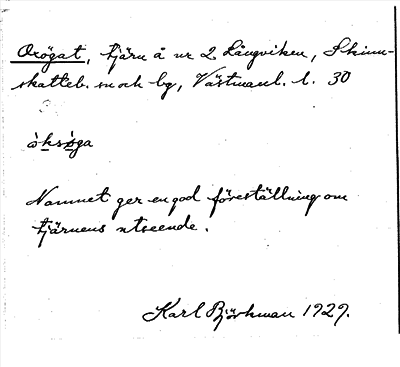 Oxögat, tjärn å nr 2 Långviken, Skinn-
skatteb. sn och bg, Västmanl. l. 30
òksǫga
Namnet ger en god föreställning om
tjärnens utseende.
Karl Björkman 1929.